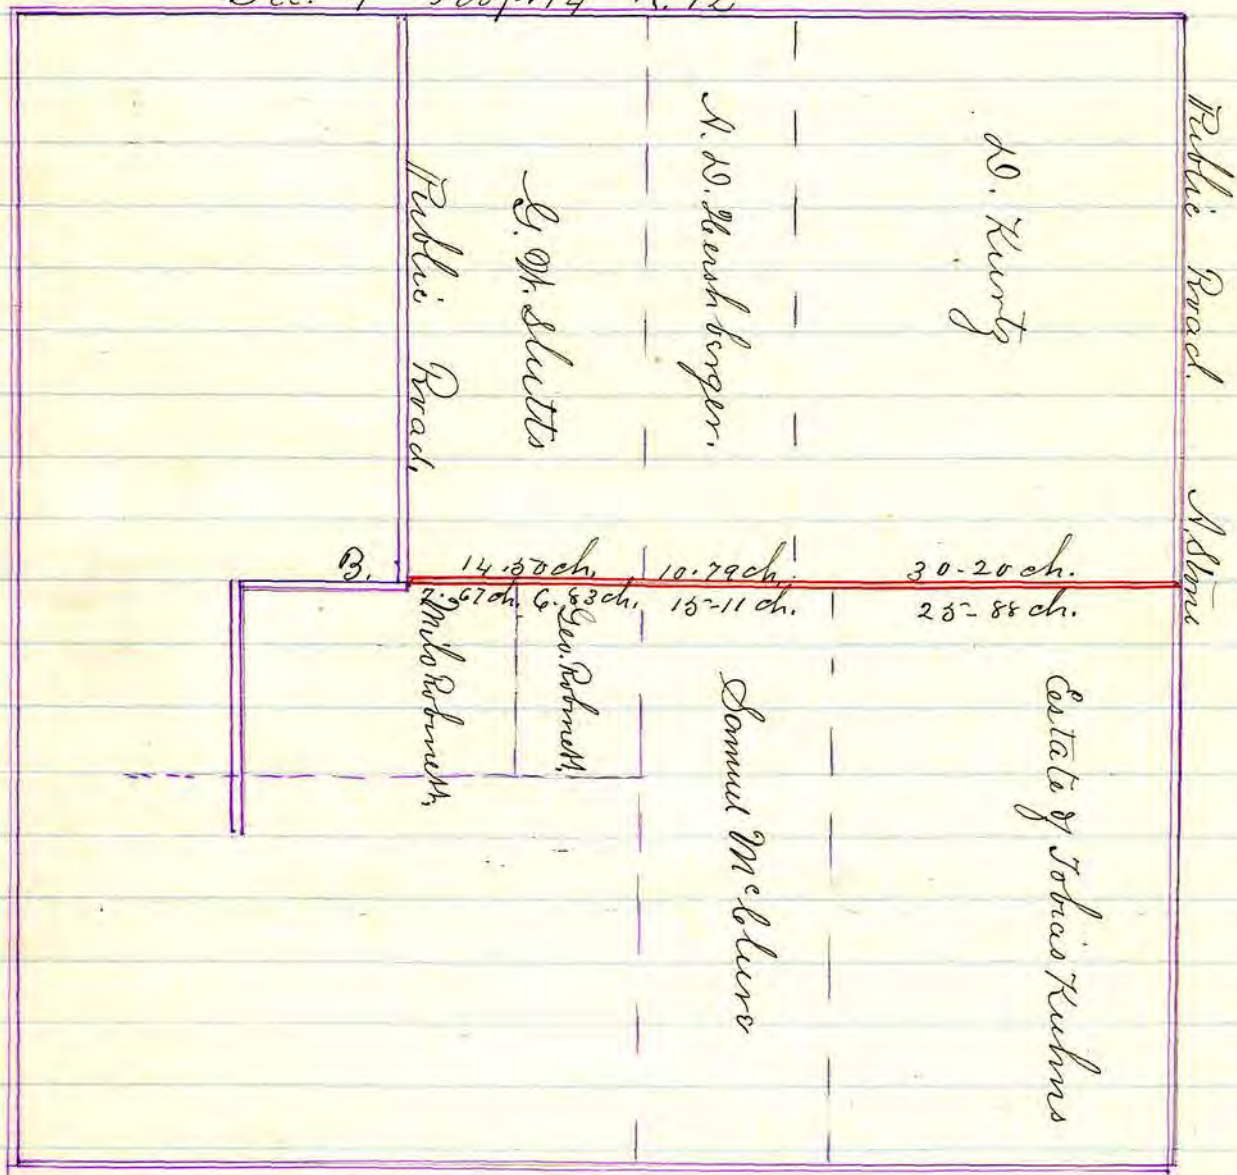 Sec. 4 Twp. 14 R. 12
Public Road.
N. Stone
D. Kurtz
N. D. Hershberger.
G. W. Slutts
Public Road.
B.
14.50 ch.
10.79 ch.
30-20 ch.
7.67 ch.
6.83 ch.
15-11 ch.
25-88 ch.
Milo Robinett,
Geo. Robinett,
Samuel McClure
Estate of Tobias Kuhns